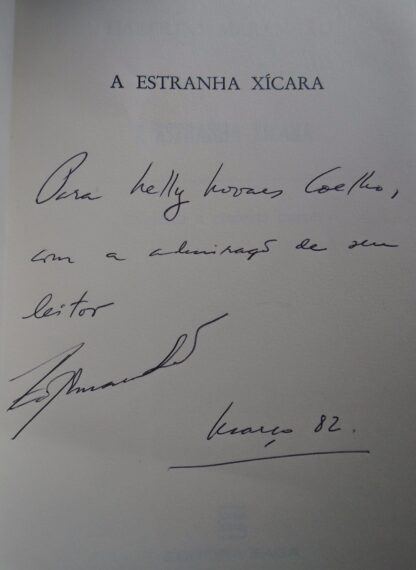 A ESTRANHA XÍCARA
Para Nelly Novaes Coelho,
com a admiração de seu
leitor
Março 82.